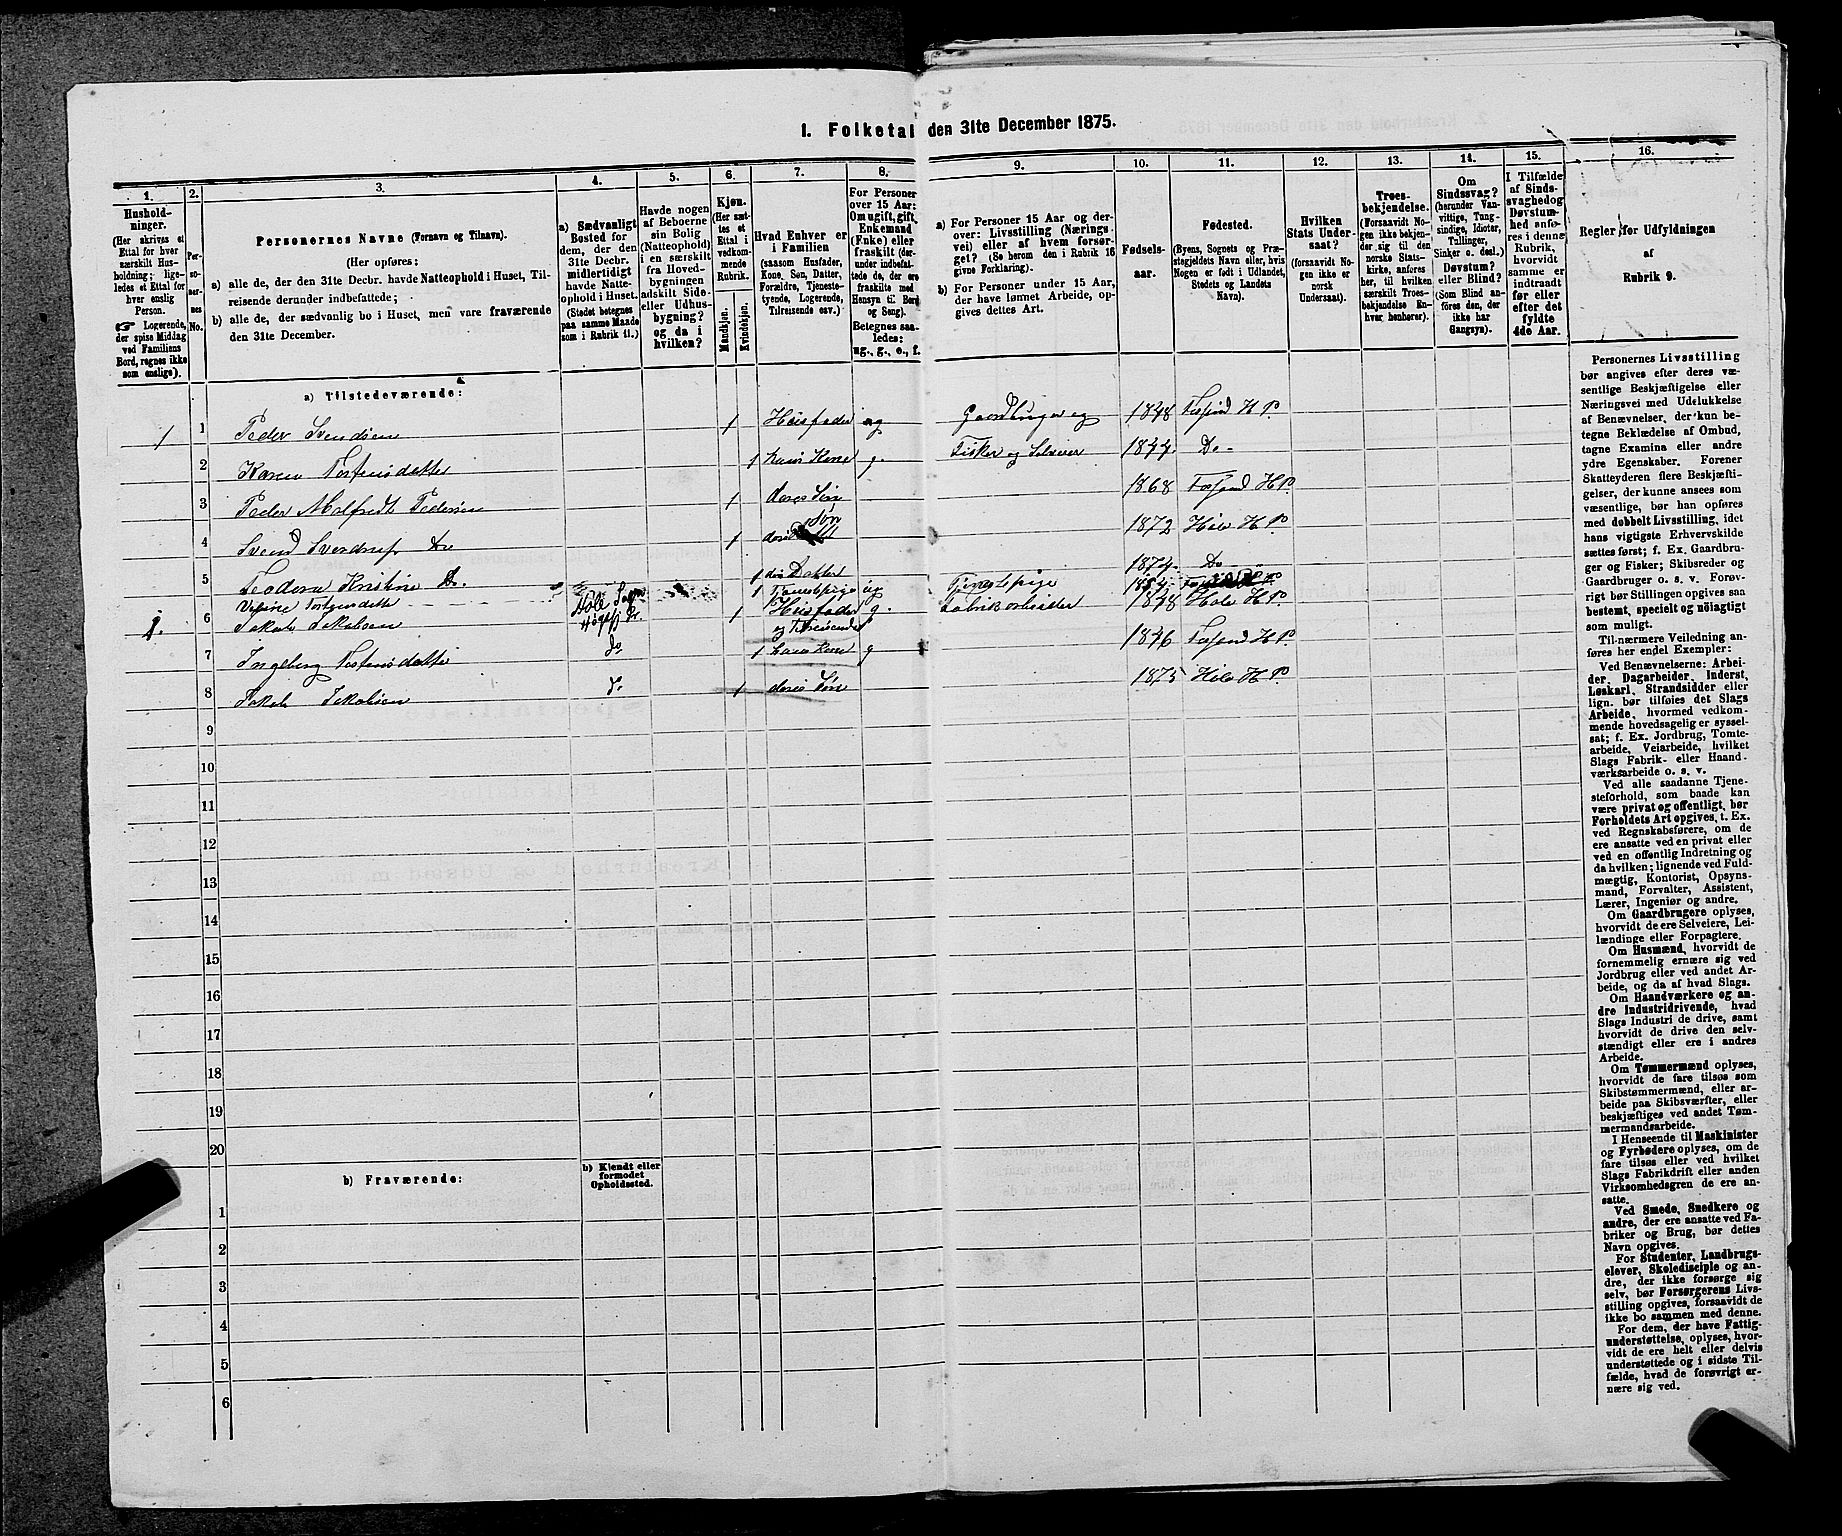 1. Folketal den 31te December 1875.
1.
Hushold-
ninger.
(Her skrives et
Ettal for hver
særskilt Hus-
holdning; lige-
ledes et Ettal for
hver enslig
Person.
☞ Logerende,
der spise Middag
ved Familiens
Bord, regnes ikke
som enslige).
2.
Per-
so-
ner-
nes
No.
3.
Personernes Navne (Fornavn og Tilnavn).
(Her opføres:
a) alle de, der den 31te Decbr. havde Natteophold i Huset, Til-
reisende derunder indbefattede;
b) alle de, der sædvanlig bo i Huset, men vare fraværende
den 31te December.
4.
a) Sædvanligt
Bosted for
dem, der den
31te Decbr.
midlertidigt
havde Natte-
ophold i Huset.
(Stedet betegnes
paa samme Maade
som i Rubrik 11.)
5.
Havde nogen
af Beboerne
sin Bolig
(Natteophold)
i en særskilt
fra Hoved-
bygningen
adskilt Side-
eller Udhus-
bygning?
og da i
hvilken?
6.
Kjøn.
(Her sæt-
tes et
Ettal i
vedkom-
mende
Rubrik.
Mandkjøn.
Kvindekjøn.
7.
Hvad Enhver er
i Familien
(saasom Husfader,
Kone, Søn, Datter,
Forældre, Tjeneste-
tyende, Logerende,
Tilreisende osv.)
8.
For Personer
over 15 Aar:
Om ugift, gift,
Enkemand
(Enke) eller
fraskilt (der-
under indbefat-
tede de, der ere
fraskilte med
Hensyn til Bord
og Seng).
Betegnes saa-
ledes:
ug., g., e., f.
9.
a) For Personer 15 Aar og der-
over: Livsstilling (Nærings-
vei) eller af hvem forsør-
get? (Se herom den i Rubrik 16
givne Forklaring).
b) For Personer under 15 Aar,
der have lønnet Arbeide, op-
gives dettes Art.
10.
Fødsels-
aar.
11.
Fødested.
(Byens, Sognets og Præ-
stegjeldets Navn eller, hvis
Nogen er født i Udlandet,
Stedets og Landets
Navn).
12.
Hvilken
Stats Under-
saat?
(forsaavidt No-
gen ikke er
norsk
Undersaat).
13.
Troes-
bekjendelse.
(Forsaavidt No-
gen ikke bekjen-
der sig til den
norske Stats-
kirke, anføres
her, til hvilken
særskilt Troes-
bekjendelse En-
hver henhører).
14.
Om
Sindssvag?
(herunder Van-
vittige, Tung-
sindige, Idioter,
Tullinger,
Sinker o. desl.)
Døvstum?
eller Blind?
(Som Blind an-
føres den, der
ikke har
Gangsyn).
15.
I Tilfælde
af Sinds-
svaghed og
Døvstum-
hed anfø-
res i denne
Rubrik,
hvorvidt
samme er
indtraadt
før eller
efter det
fyldte
4de Aar.
16.
Regler for Udfyldningen
af
Rubrik 9.
a) Tilstedeværende:
1 1 Peder Svendsen 1 Husfader g Gaardbruger og 1838 Fosjand H P.
2 Karen Torstensdatter 1 hans Kone g. Fisker og Selveier 1844 Do
3 Peder Malfredt Pedersen 1 deres Søn 1868 Fosjand H P.
4 Svend Sverdrup Do 1 deres Søn 1872 Hole H P.
5 Teodora Kristine D. 1 deres Datter 1874 Do
Torstensdatter 1 Tjenestepige ug Tjenestepige
1. 6 Jakob Jakobsen Hole Sogn 1 Husfader g. Fabrikarbeider 1848 Hole H P.
og Tilreisende
7 Ingeborg Torstensdatter Do 1 hans Kone g 1846 Fosjand H P.
8 Jakob Jakobsen Do 1 deres Søn 1875 Hole H P.
9
10
11
12
13
14
15
16
17
18
19
20
b) Fraværende:
b) Kjendt eller
formodet
Opholdssted.
1
2
3
4
5
6
Personernes Livsstilling
bør angives efter deres væ-
sentlige Beskjæftigelse eller
Næringsvei med Udelukkelse
af Benævnelser, der kun be-
tegne Beklædelse af Ombud,
tagne Examina eller andre
ydre Egenskaber. Forener
Skatteyderen flere Beskjæfti-
gelser, der kunne ansees som
væsentlige, bør han opføres
med dobbelt Livsstilling, idet
hans vigtigste Erhvervskilde
sættes først; f. Ex. Gaardbru-
ger og Fisker; Skibsreder og
Gaardbruger o. s. v. Forøv-
rigt bør Stillingen opgives saa
bestemt, specielt og nøiagtigt
som muligt.
Til nærmere Veiledning an-
føres her endel Exempler:
Ved Benævnelserne: Arbei-
der, Dagarbeider, Inderst,
Løskarl, Strandsidder eller
lign. bør tilføies det Slags
Arbeide, hvormed vedkom-
mende hovedsagelig er syssel-
sat; f. Ex. Jordbrug, Tomte-
arbeide, Veiarbeide, hvilket
Slags Fabrik- eller Haand-
værksarbeide o. s. v.
Ved alle saadanne Tjene-
steforhold, som baade kan
være privat og offentligt, bør
Forholdets Art opgives, t. Ex.
ved Regnskabsførere, om de
ere ansatte ved en privat eller
ved en offentlig Indretning og
da hvilken; lignende ved Fuld-
mægtig, Kontorist, Opsyns-
mand, Forvalter, Assistent,
Lærer, Ingeniør og andre.
Om Gaardbrugere oplyses,
hvorvidt de ere Selveiere, Lei-
lændinge eller Forpagtere.
Om Husmænd, hvorvidt de
fornemmelig ernære sig ved
Jordbrug eller ved andet Ar-
beide, og da af hvad Slags.
Om Haandværkere og an-
dre Industridrivende, hvad
Slags Industri de drive, samt
hvorvidt de drive den selv-
stændigt eller ere i andres
Arbeide.
Om Tømmermænd oplyses,
hvorvidt de fare tilsøs som
Skibstømmermænd, eller ar-
beide paa Skibsværfter, eller
beskjæftiges ved andet Tøm-
mermandsarbeide.
I Henseende til Maskinister
og Fyrbødere oplyses, om de
fare tilsøs eller ved hvilket
Slags Fabrikdrift eller anden
Virksomhedsgren de ere an-
satte.
Ved Smede, Snedkere og
andre, der ere ansatte ved Fa-
briker og Brug, bør dettes
Navn opgives.
For Studenter, Landbrugs-
elever, Skoledisciple og an-
dre, der ikke forsørge sig
selv, bør Forsørgerens Livs-
stilling opgives, forsaavidt de
ikke bo sammen med denne.
For dem, der have Fattig-
understøttelse, oplyses, hvor-
vidt de ere helt eller delvis
understøttede og i sidste Til-
fælde, hvad de forøvrigt er-
nære sig ved.